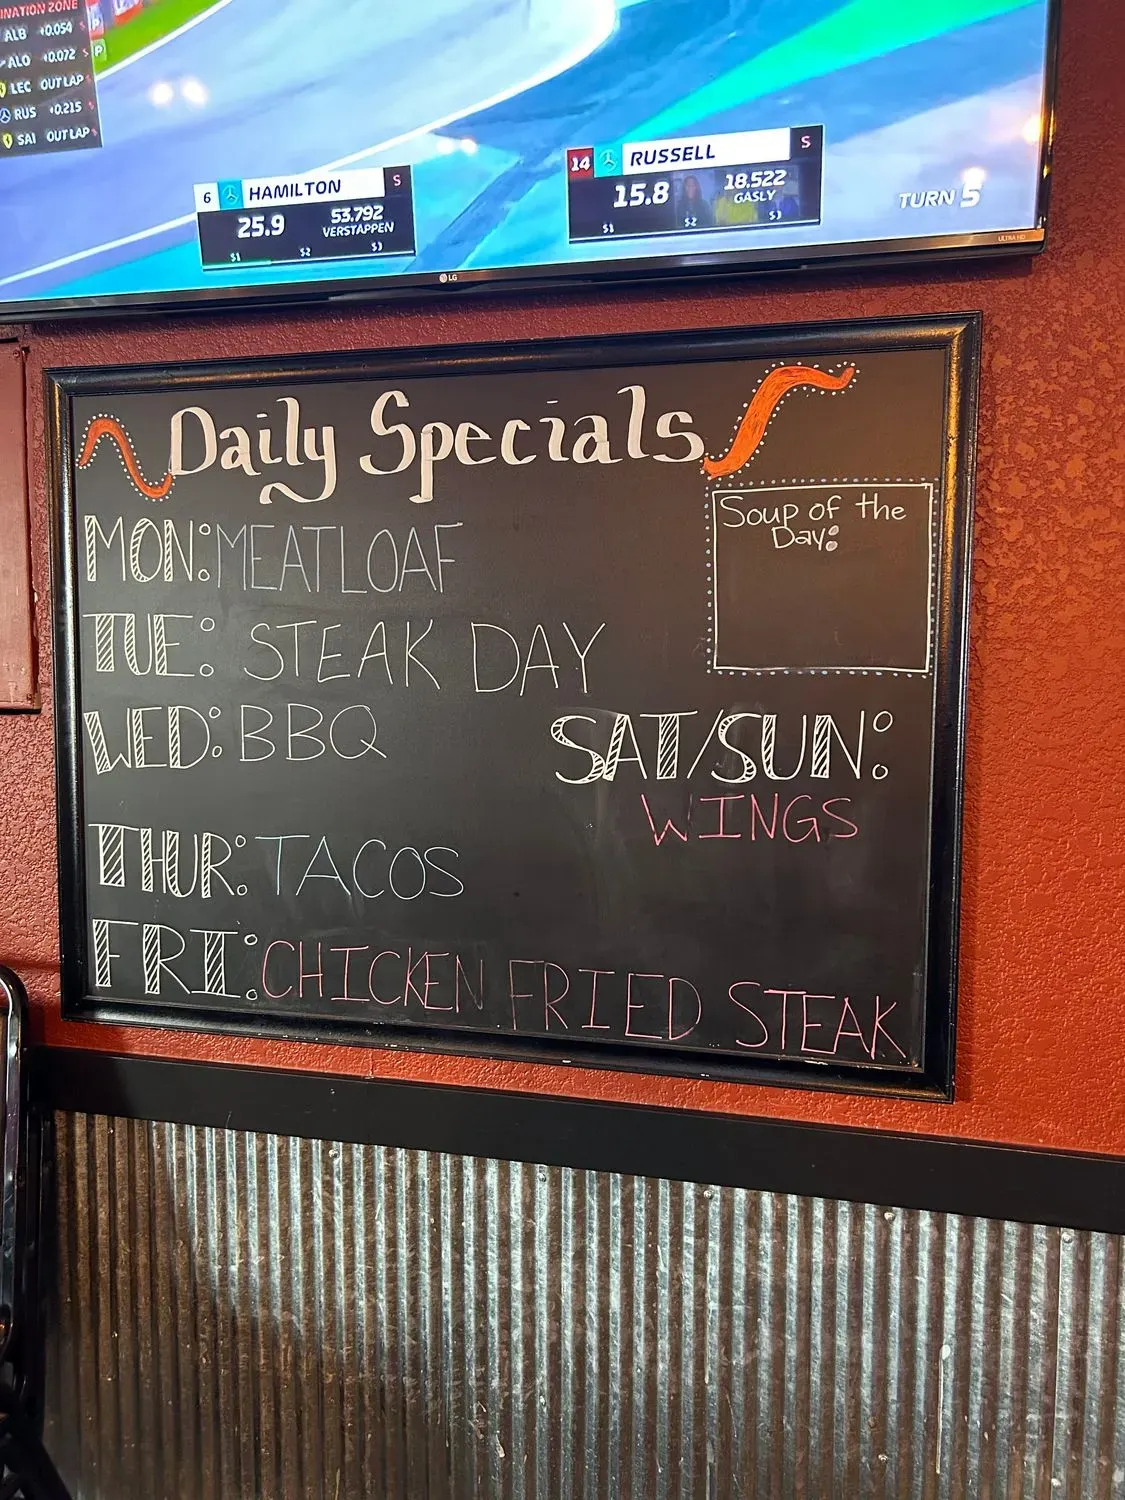 INATION ZONE
ALB +0.054 S P
ALO +0.072 S P
LEC OUT LAP
RUS +0.215 S
SAI OUT LAP S
6 HAMILTON S
25.9 53.792
VERSTAPPEN
S1 S2 S3
14 RUSSELL S
15.8 18.522
GASLY
S1 S2 S3
TURN 5
LG
ULTRA HD
Daily Specials
Soup of the
Day:
MON: MEATLOAF
TUE: STEAK DAY
WED: BBQ
SAT/SUN:
WINGS
THUR: TACOS
FRI: CHICKEN FRIED STEAK